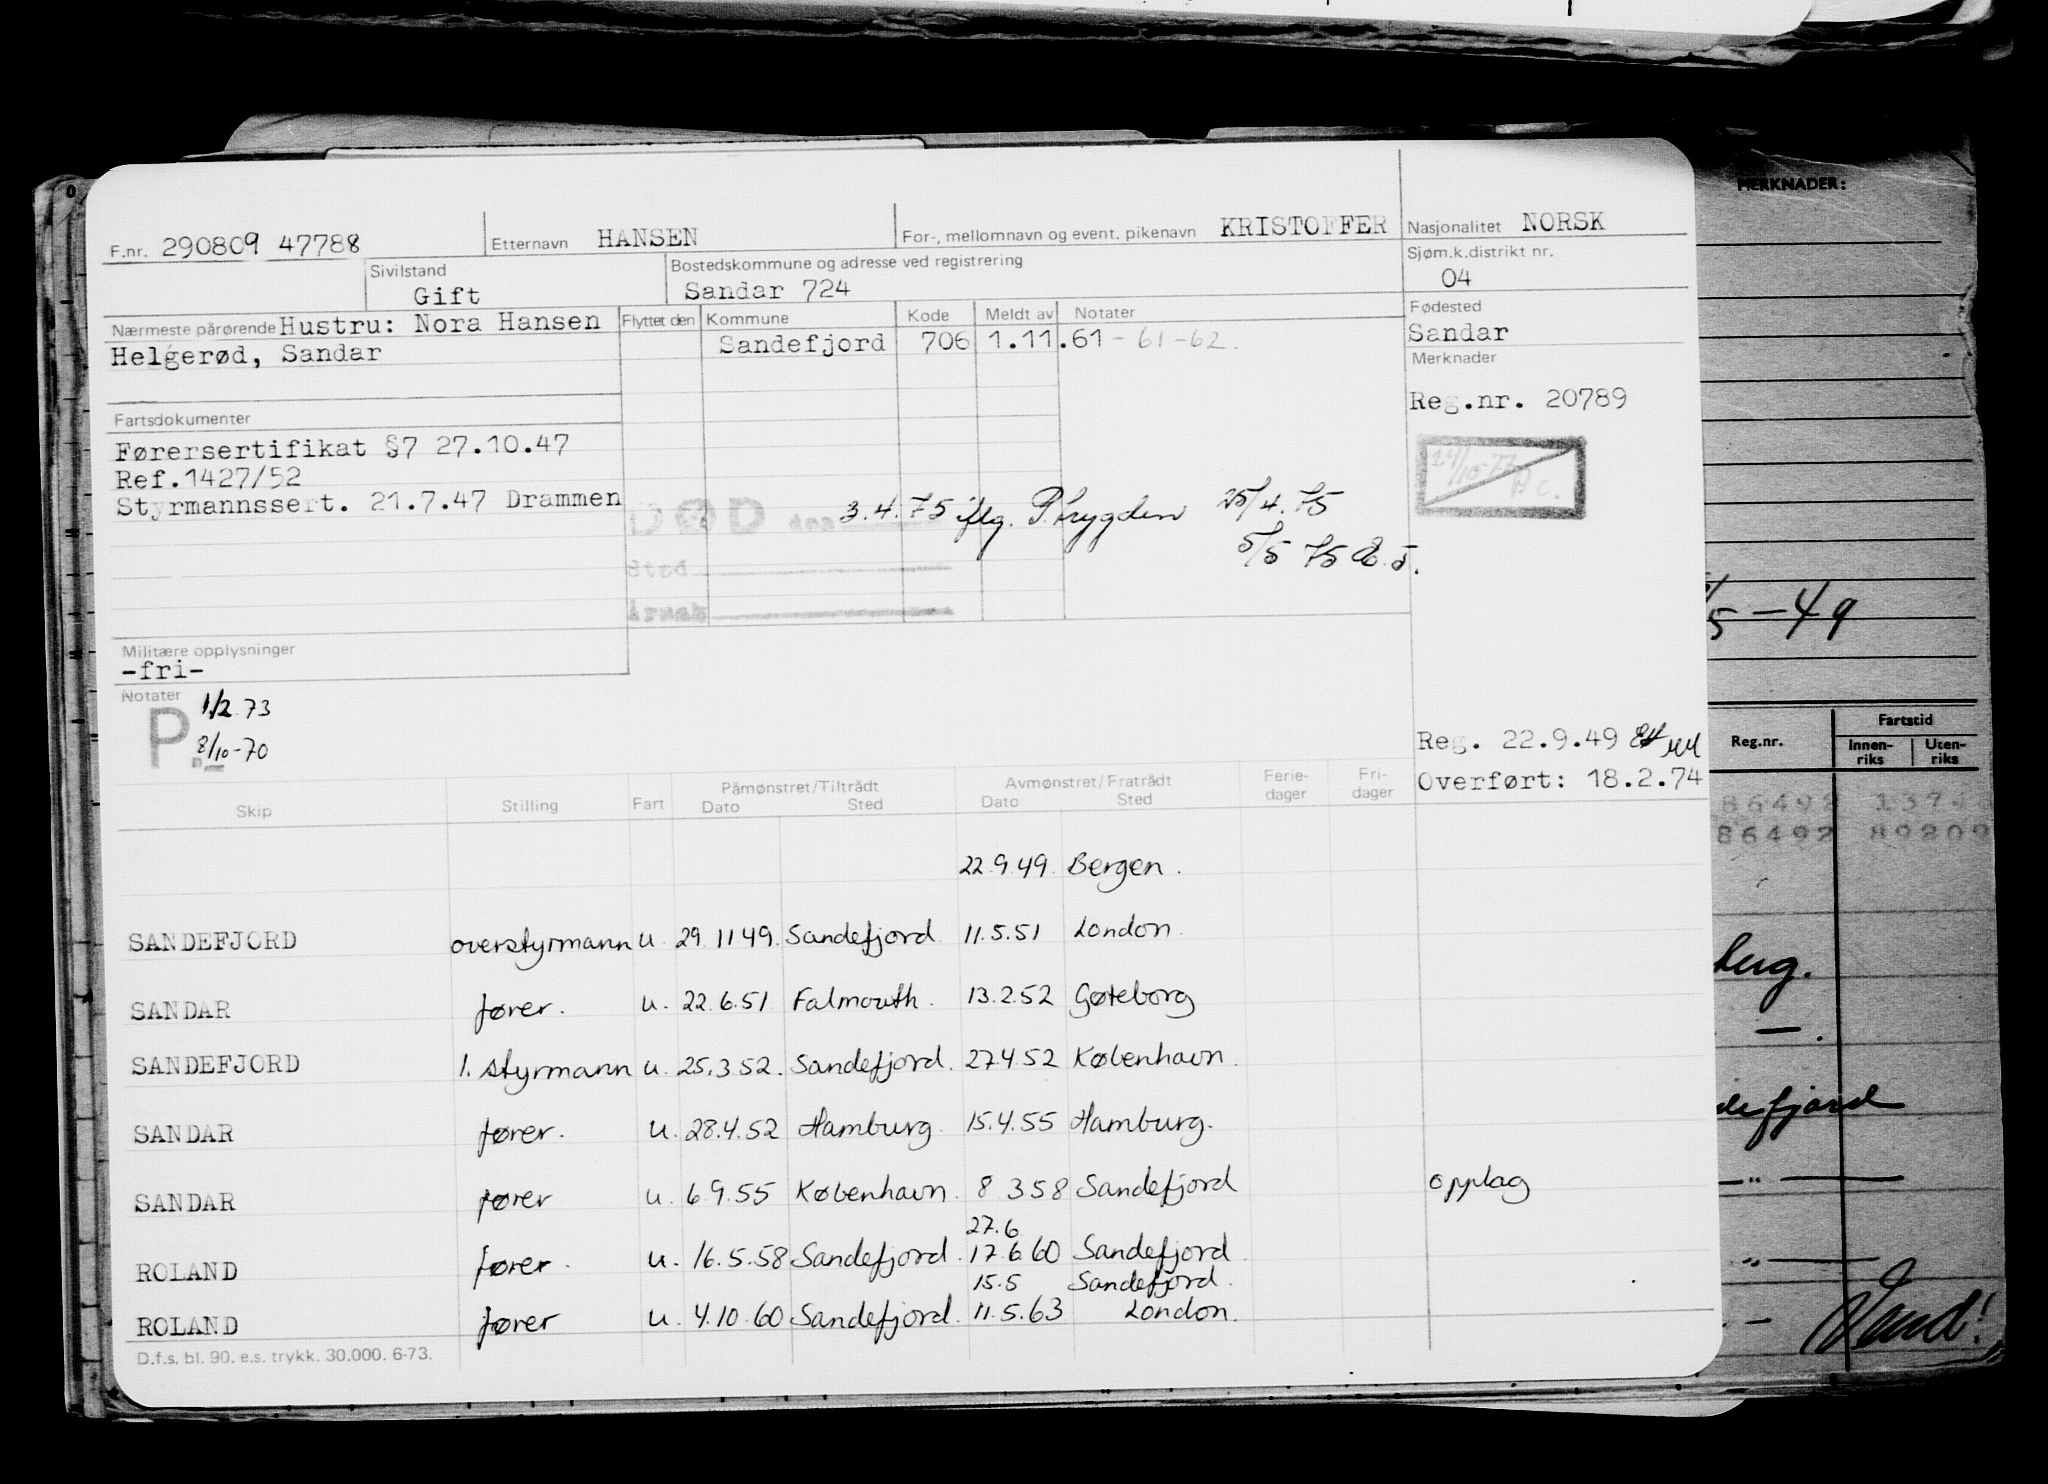 MERKNADER:
F.nr. 290809 47788 Etternavn HANSEN For-, mellomnavn og event. pikenavn KRISTOFFER Nasjonalitet NORSK
Sivilstand Gift Bostedskommune og adresse ved registrering Sandar 724 Sjøm.k.distrikt nr. 04
Nærmeste pårørende Hustru: Nora Hansen Flyttet den Kommune Kode Meldt av Notater Fødested
Helgerød, Sandar Sandefjord 706 1.11.61 - 61-62. Sandar
Merknader
Reg.nr. 20789
Fartsdokumenter
Førersertifikat §7 27.10.47
Ref.1427/52
Styrmannssert. 21.7.47 Drammen
24/10-77
DØD den 3.4.75 iflg. P.trygden 25/4.75
5/5 75
Sted
Årsak
5-49
Militære opplysninger
-fri-
Notater
P. 1/2 73
8/10-70
Reg. 22.9.49
Overført: 18.2.74
Reg.nr. Fartstid
Innen-riks Uten-riks
86492
86492 89209
Skip Stilling Fart Påmønstret/Tiltrådt Dato Sted Avmønstret/Fratrådt Dato Sted Ferie-dager Fri-dager
22.9.49 Bergen.
SANDEFJORD overstyrmann u. 29 11 49. Sandefjord 11.5.51 London.
SANDAR fører. u. 22.6.51 Falmouth. 13.2.52 Gøteborg
SANDEFJORD 1. styrmann u. 25.3.52. Sandefjord. 27.4.52 København.
SANDAR fører. u. 28.4.52 Hamburg. 15.4.55 Hamburg.
SANDAR fører u. 6.9.55 København. 8 3 58 Sandefjord opplag
27.6
ROLAND fører. u. 16.5.58 Sandefjord. 17.6.60 Sandefjord.
15.5 Sandefjord.
ROLAND fører u. 4.10.60 Sandefjord. 11.5.63 London.
D.f.s. bl. 90. e.s. trykk. 30.000. 6-73.